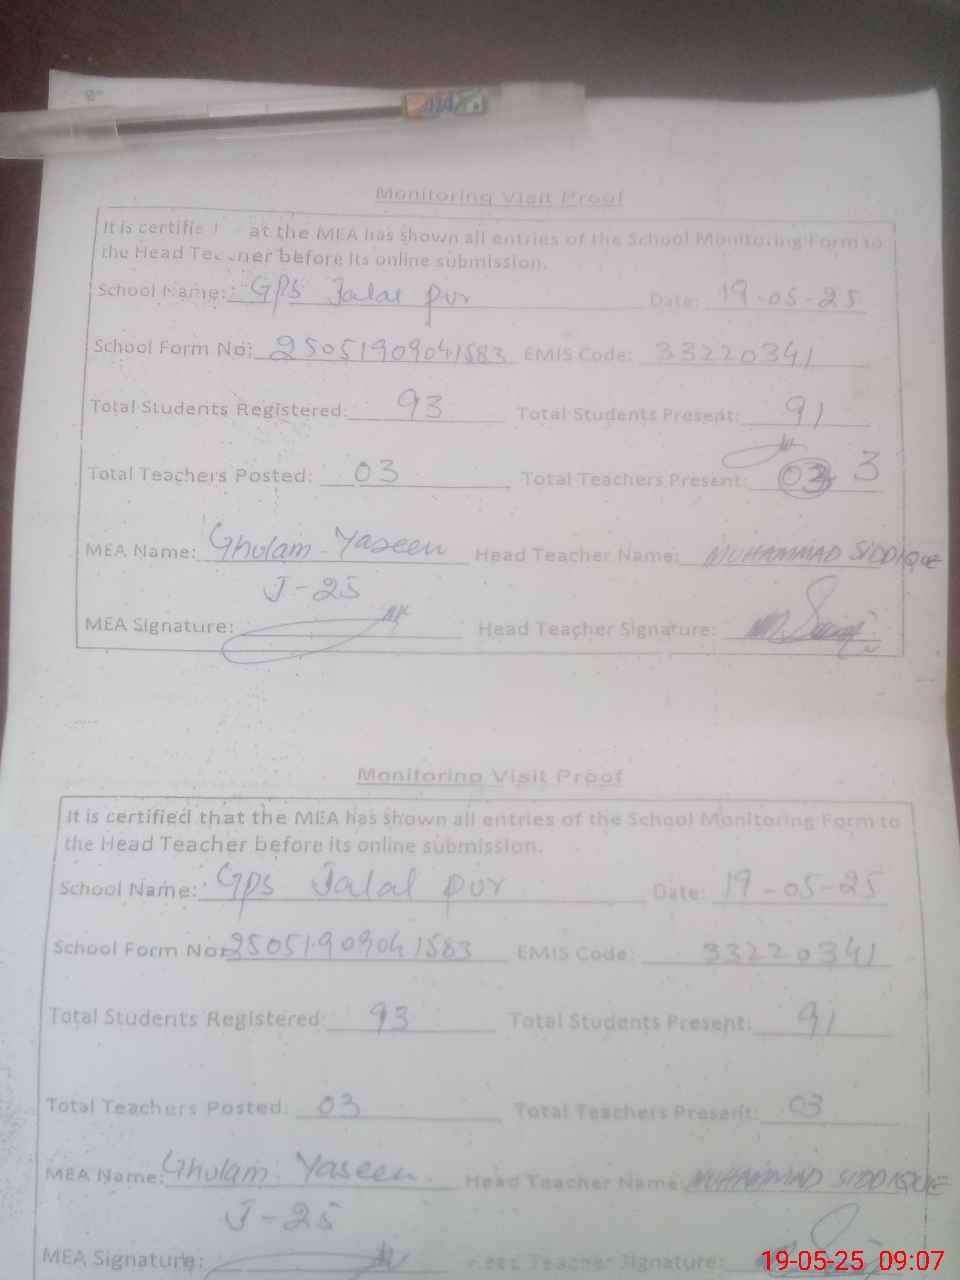 Monitoring Visit Proof
It is certifie at the MEA has shown all entries of the School Monitoring Form to
the Head Teacher before its online submission.
School Name: GPS Jalal pur Date: 19-05-25
School Form No: 25051909041583 EMIS Code: 33220341
Total Students Registered: 93 Total Students Present: 91
Total Teachers Posted: 03 Total Teachers Present: 03 3
MEA Name: Ghulam Yaseen Head Teacher Name: MUHAMMAD SIDDIQUE
J-25
MEA Signature: Head Teacher Signature:
Monitoring Visit Proof
It is certified that the MEA has shown all entries of the School Monitoring Form to
the Head Teacher before its online submission.
School Name: GPS Jalal pur Date: 19-05-25
School Form No: 25051909041583 EMIS Code: 33220341
Total Students Registered: 93 Total Students Present: 91
Total Teachers Posted: 03 Total Teachers Present: 03
MEA Name: Ghulam Yaseen Head Teacher Name: MUHAMMAD SIDDIQUE
J-25
MEA Signature: Head Teacher Signature:
19-05-25 09:07